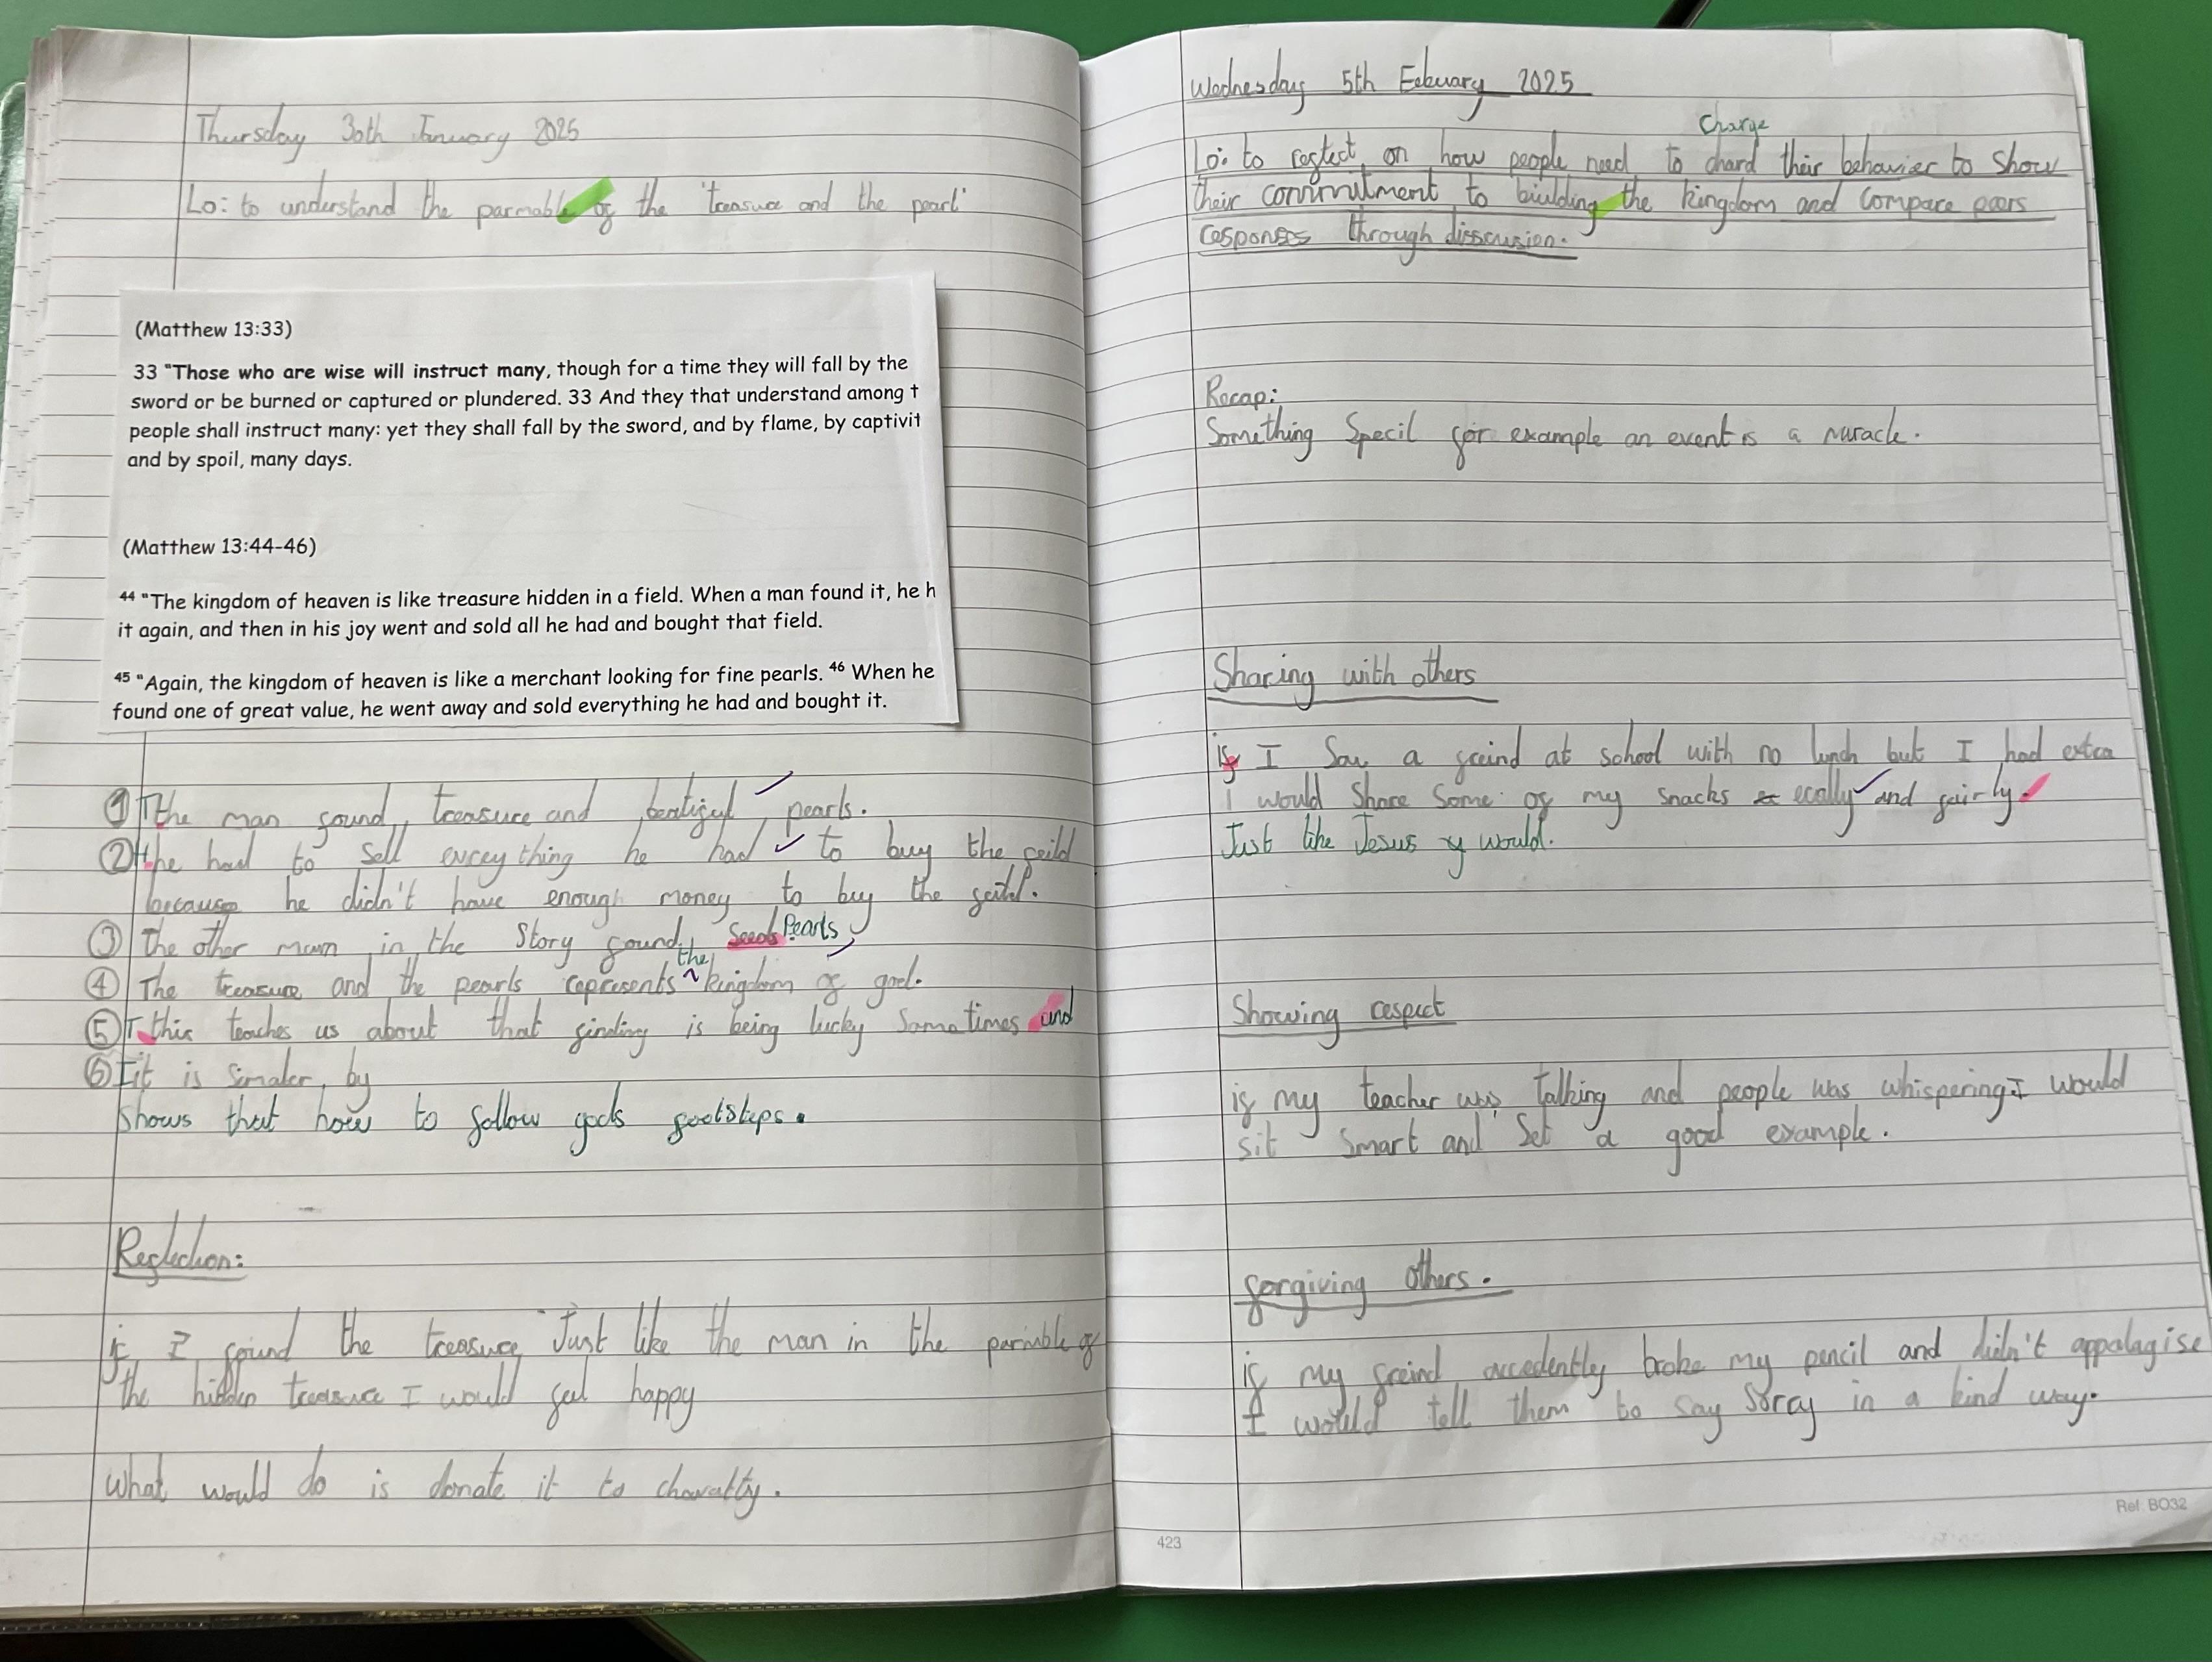 Thursday 30th January 2025
Lo: to understand the parmable of the 'treasure and the pearl'
(Matthew 13:33)
33 "Those who are wise will instruct many, though for a time they will fall by the
sword or be burned or captured or plundered. 33 And they that understand among t
people shall instruct many: yet they shall fall by the sword, and by flame, by captivit
and by spoil, many days.
(Matthew 13:44-46)
44 "The kingdom of heaven is like treasure hidden in a field. When a man found it, he h
it again, and then in his joy went and sold all he had and bought that field.
45 "Again, the kingdom of heaven is like a merchant looking for fine pearls. 46 When he
found one of great value, he went away and sold everything he had and bought it.
① The man found treasure and beatiful pearls.
② he had to sell everything he had to buy the feild
because he didn't have enough money to buy the feild.
③ The other man in the Story found Seeds Pearls
④ The treasure and the pearls represents the kingdom of god.
⑤ This teaches us about that finding is being lucky Sometimes and
⑥ It is Simaler by
Shows that how to follow gods footsteps.
Reflection:
if I found the treasure Just like the man in the parable of
the hidden treasure I would feel happy
What would do is donate it to charatty.
Wednesday 5th Febuary 2025
Change
Lo: to reflect on how people need to chard their behavier to show
their commitment to biulding the kingdom and compare peers
responses through disscusion.
Recap:
Something Specil for example an event is a miracle.
Sharing with others
if I Saw a freind at school with no lunch but I had extra
I would Share Some of my snacks ecally and fairly.
Just like Jesus would.
Showing respect
if my teacher was talking and people was whispering I would
sit Smart and Set a good example.
forgiving others.
if my freind accedently broke my pencil and didn't appalagise
I would tell them to say Sorry in a kind way.
423
Ref BO32